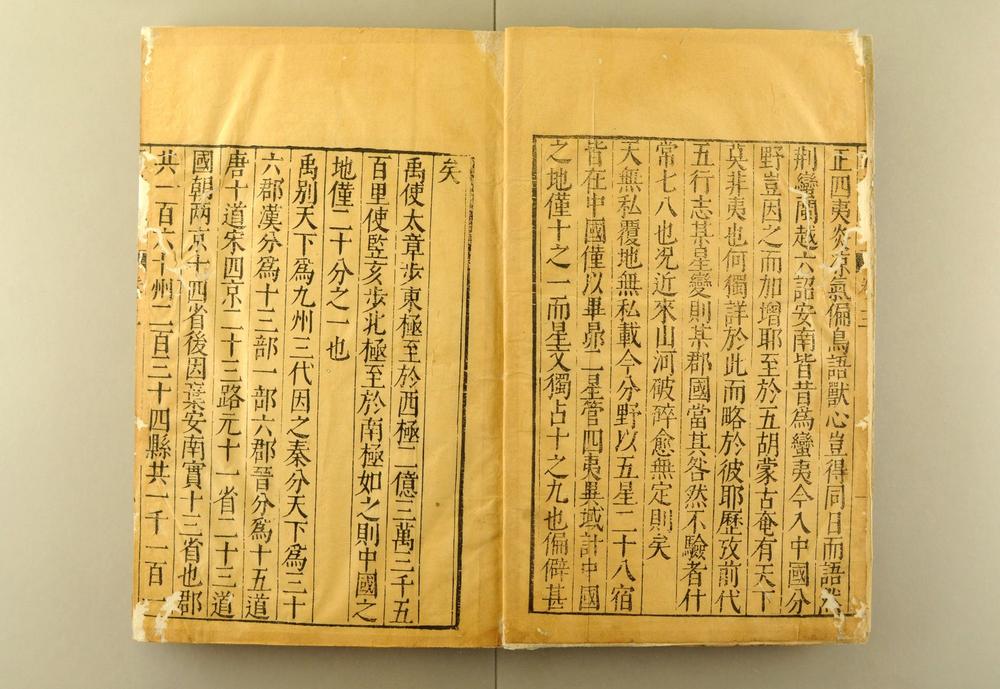 正四夷炎凉氣偏鳥語獸心豈得同日而語然
荆蠻閩越六詔安南皆昔為蠻夷今入中國分
野豈因之而加增耶至於五胡蒙古奄有天下
莫非夷也何獨詳於此而略於彼耶歷攷前代
五行志某星變則某郡國當其咎然不驗者什
常七八也况近來山河破碎愈無定則矣
天無私覆地無私載今分野以五星二十八宿
皆在中國僅以畢昴二星管四夷異域計中國
之地僅十之一而星文獨占十之九也偏僻甚
矣
禹使太章步東極至於西極二億三萬三千五
百里使竪亥步北極至於南極如之則中國之
地僅二十分之一也
禹別天下爲九州三代因之秦分天下爲三十
六郡漢分爲十三部一部六郡晉分爲十五道
唐十道宋四京二十三路元十一省二十三道
國朝两京十四省後因棄安南實十三省也郡
共一百六十州二百三十四縣共一千一百一